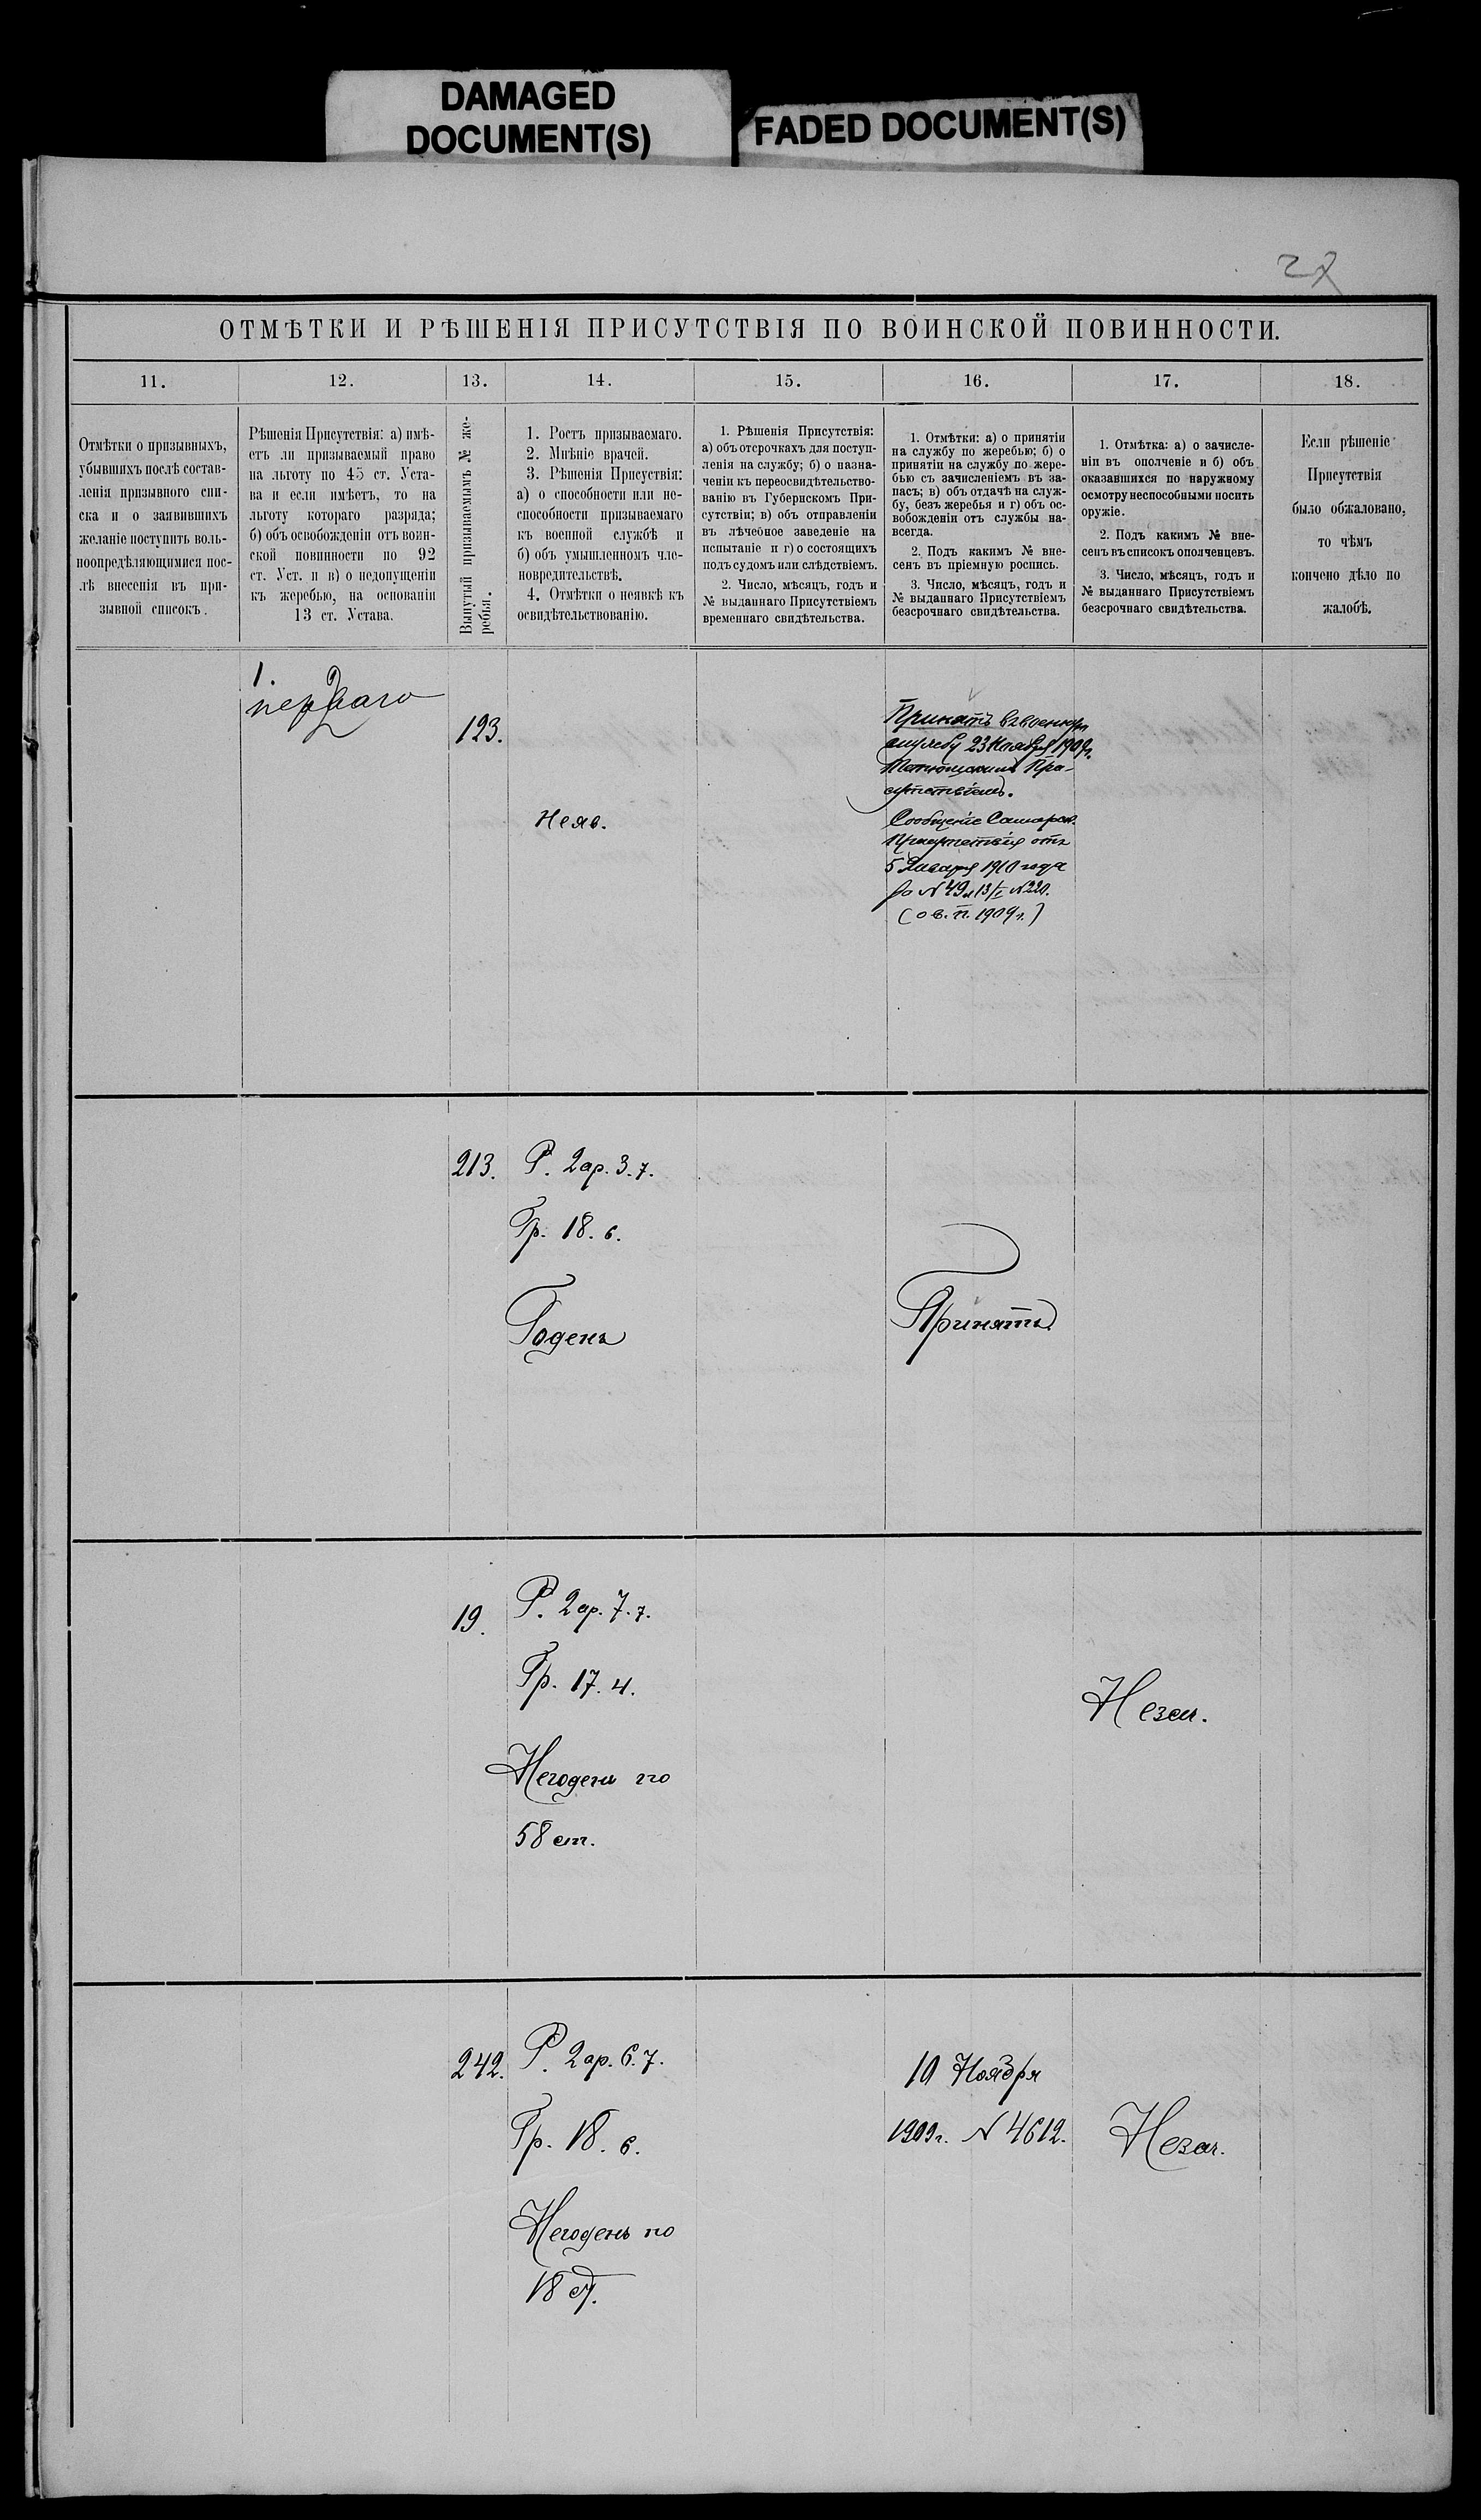 DAMAGED
DOCUMENT(S)
FADED DOCUMENT(S)
27
ОТМѢТКИ И РѢШЕНІЯ ПРИСУТСТВІЯ ПО ВОИНСКОЙ ПОВИННОСТИ.
11.
12.
13.
14.
15.
16.
17.
18.
Отмѣтки о призывныхъ,
убывшихъ послѣ состав-
ленія призывного спи-
ска и о заявившихъ
желаніе поступить воль-
ноопредѣляющимися пос-
лѣ внесенія въ при-
зывной списокъ.
Рѣшенія Присутствія: а) имѣ-
етъ ли призываемый право
на льготу по 45 ст. Уста-
ва и если имѣетъ, то на
льготу котораго разряда;
б) объ освобожденіи отъ воин-
ской повинности по 92
ст. Уст. и в) о недопущеніи
къ жеребью, на основаніи
13 ст. Устава.
Вынутый призываемымъ № же-
ребья.
1. Ростъ призываемаго.
2. Мнѣніе врачей.
3. Рѣшенія Присуствія:
а) о способности или не-
способности призываемаго
къ военной службѣ и
б) объ умышленномъ чле-
новредительствѣ.
4. Отмѣтки о неявкѣ къ
освидѣтельствованію.
1. Рѣшенія Присутствія:
а) объ отсрочкахъ для поступ-
ленія на службу; б) о назна-
ченіи къ переосвидѣтельство-
ванію въ Губернскомъ При-
сутствіи; в) объ отправленіи
въ лѣчебное заведеніе на
испытаніе и г) о состоящихъ
подъ судомъ или слѣдствіемъ.
2. Число, мѣсяцъ, годъ и
№ выданнаго Присутствіемъ
временнаго свидѣтельства.
1. Отмѣтки: а) о принятіи
на службу по жеребью; б) о
принятіи на службу по жере-
бью съ зачисленіемъ въ за-
пасъ; в) объ отдачѣ на служ-
бу, безъ жеребья и г) объ ос-
вобожденіи отъ службы на-
всегда.
2. Подъ какимъ № вне-
сенъ въ пріемную роспись.
3. Число, мѣсяцъ, годъ и
№ выданнаго Присутствіемъ
безсрочнаго свидѣтельства.
1. Отмѣтка: а) о зачисле-
ніи въ ополченіе и б) объ
оказавшихся по наружному
осмотру неспособными носить
оружіе.
2. Подъ какимъ № вне-
сенъ въ списокъ ополченцевъ.
3. Число, мѣсяцъ, годъ и
№ выданнаго Присутствіемъ
безсрочнаго свидѣтельства.
Если рѣшеніе
Присутствія
было обжаловано,
то чѣмъ
кончено дѣло по
жалобѣ.
1.
перваго
123.
Неяв.
Принятъ въ военную
службу 23 Ноября 1909г.
При-
сутствіемъ.
Сообщеніе Самарск.
Присутствія отъ
5 Января 1910 года
за № 49 13/I № 220.
(о в. п. 1909 г.)
213.
Р. 2 ар. 3. 7.
Гр. 18. 6.
Годенъ
Принятъ.
19.
Р. 2 ар. 7. 7.
Гр. 17. 4.
Негоденъ по
58 ст.
Незач.
242.
Р. 2 ар. 6. 7.
Гр. 18. 6.
Негоденъ по
18 ст.
10 Ноября
1909 г. № 4612.
Незач.